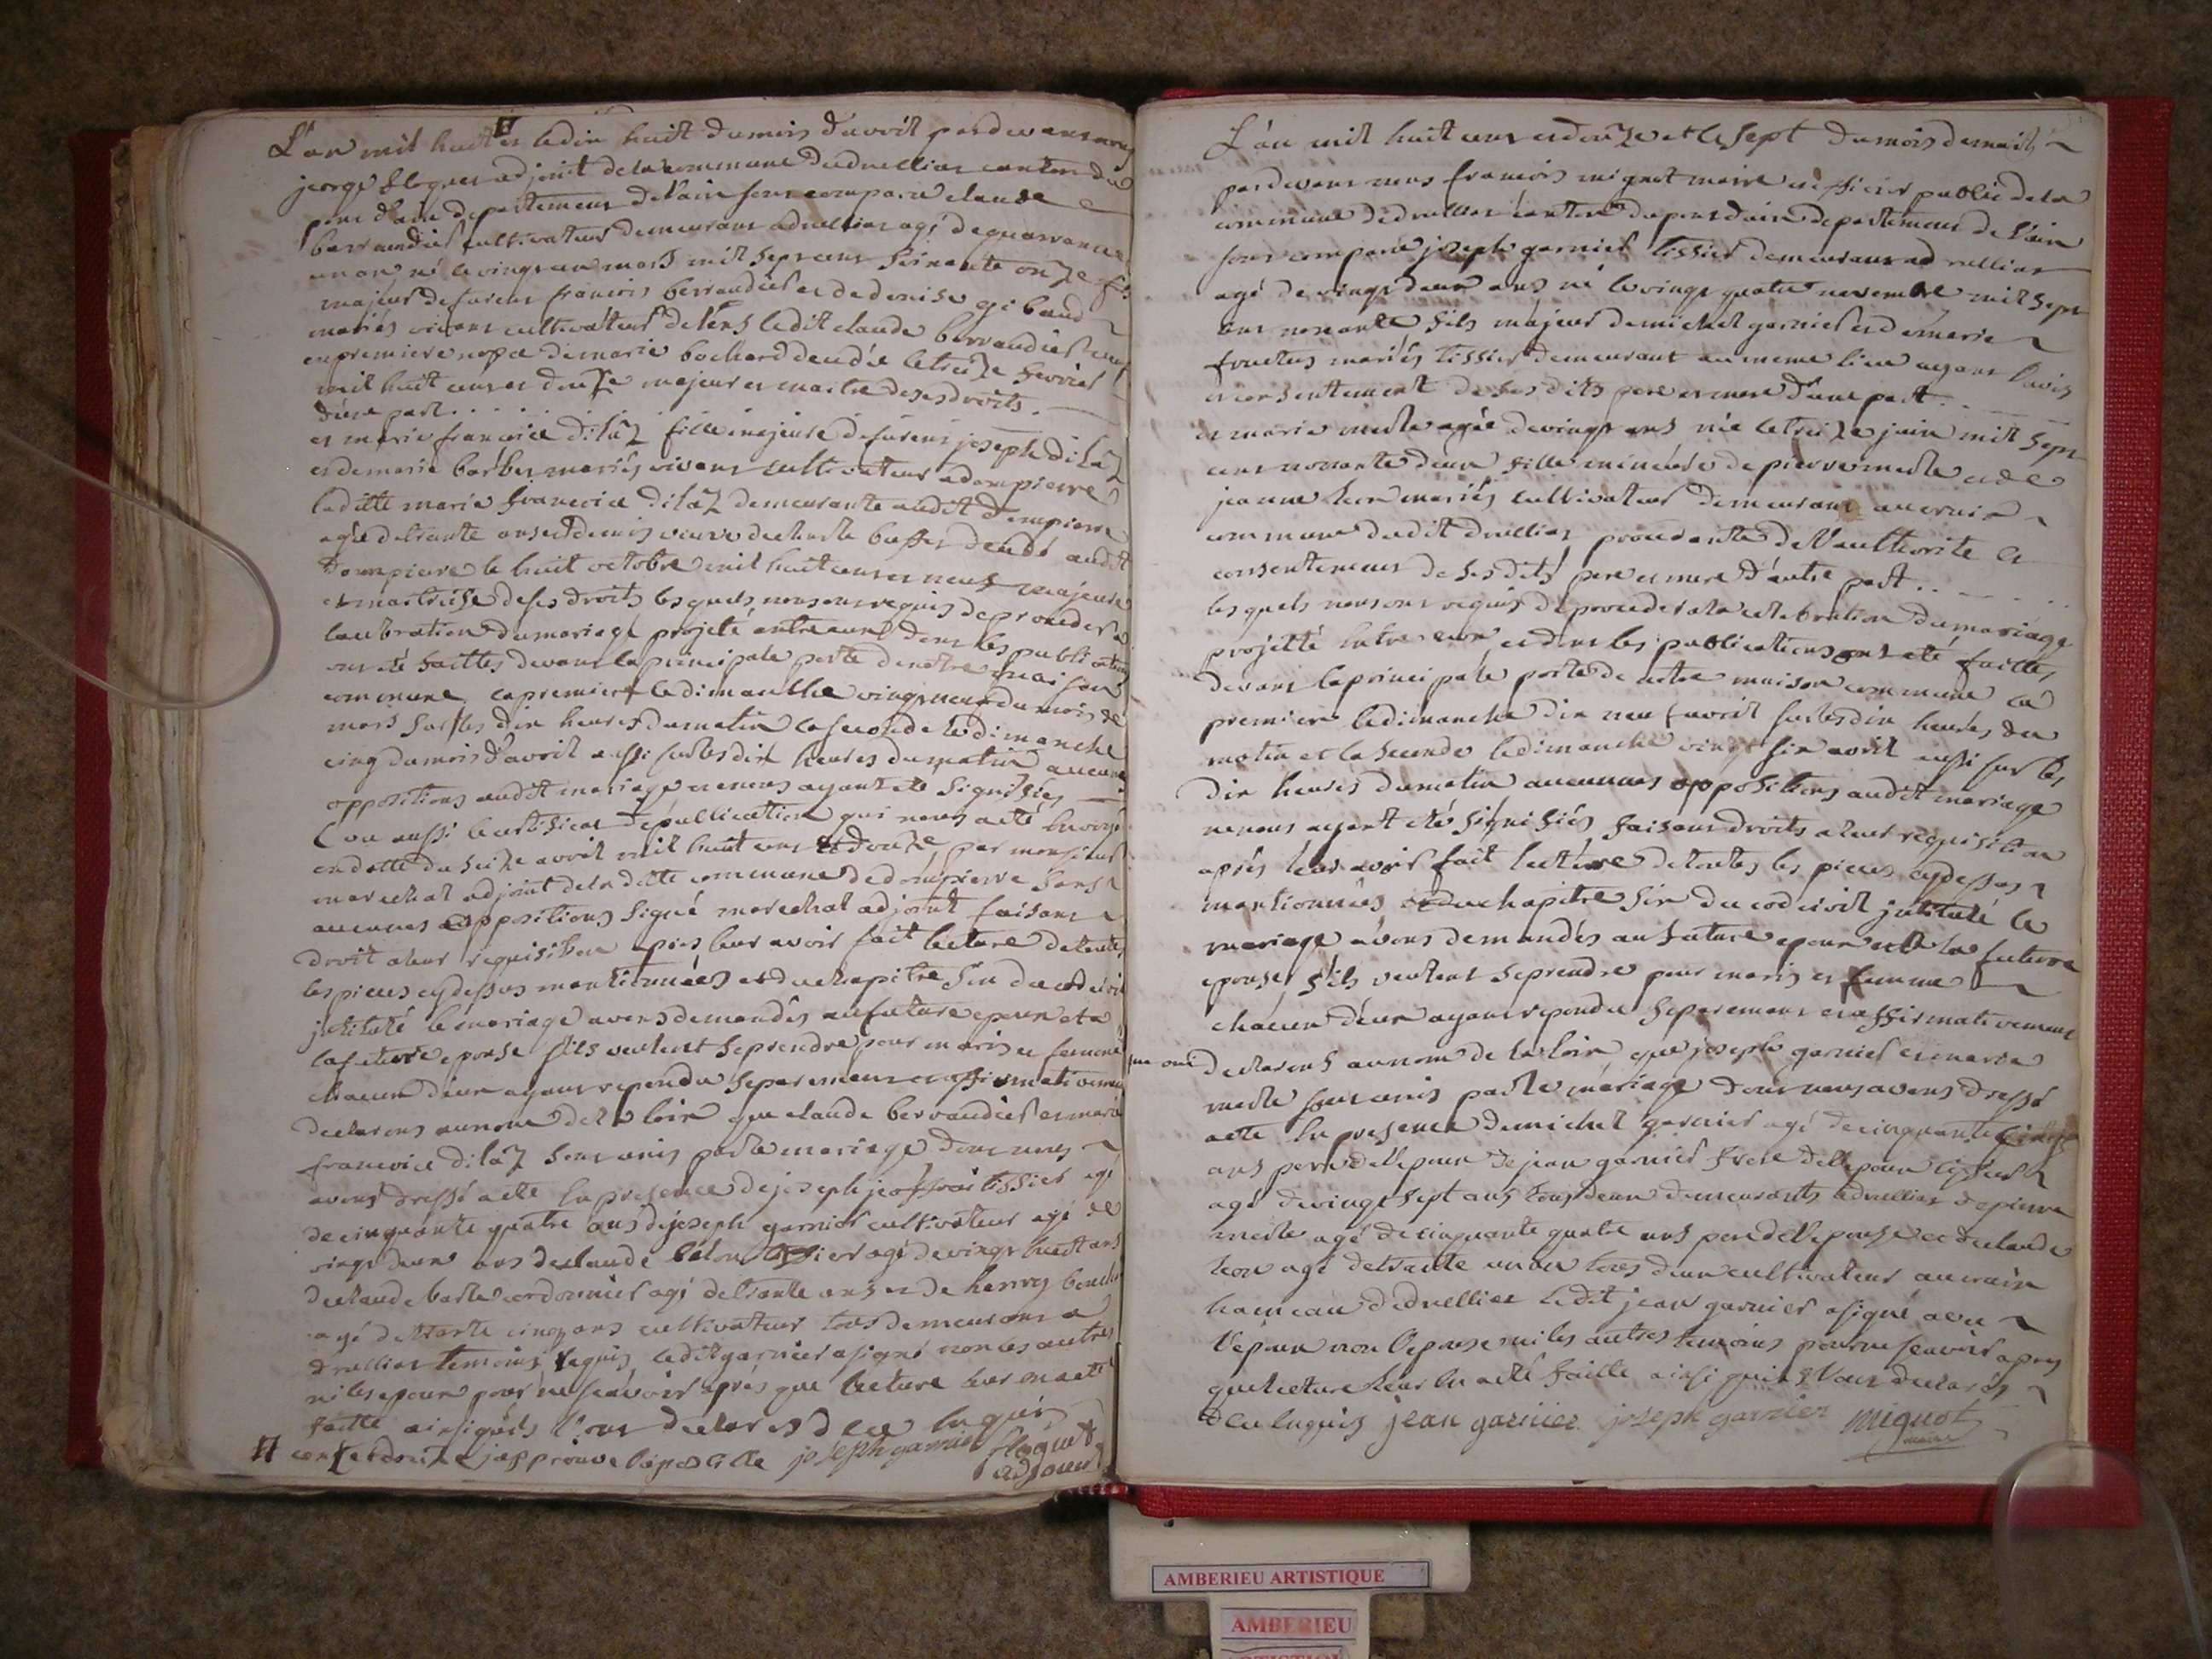 L'an mil huit et le dix huit du mois d'avril par devant nous
george floquet adjoint de la commune de druillias canton du
pont d'ain departement de l'ain sont comparu claude
berrandier cultivateur demeurant a druillias agé de quarrante
un an né le vingt un mars mil sept cent soixante onze fils
majeur de furent francois berrandier et de denise gibaud
mariés vivant cultivateur de lens ledit claude berrandier veuf
en premiere nopce de marie bochard deudée le treize fevrier
mil huit cent et douze majeur et maitre de ses droits
d'une part . . . . .
et marie francoise dilaz fille majeure de furent joseph dilaz
et de marie barbet mariés vivant cultivateur a dompierre
laditte marie francoise dilaz demeurante audit dompierre
agée de trante ans et demis veuve de charle buffet deudé audit
dompierre le huit octobre mil huit cent et neuf majeure
et maitrise de ses droits les quels nous ont requis de proceder a
la celebration du mariage projeté entre eux dont les publications
ont été faittes devant la principale porte de notre maison
commune la premiere le dimanche vingt neuf du mois de
mars sur les dix heures du matin la seconde le dimanche
cinq du mois d'avril aussi sur les dix heures du matin aucune
oppositions audit mariage ne nous ayant ete signifiés
vu aussi le certificat de publication qui nous a été envoyé
en datte du seize avril mil huit cent et douze par monsieur
marechal adjoint de la ditte commune de dompierre sans
aucunes oppositions signé marechal adjoint faisant
droit a leur requisition apres leur avoir fait lecture de toutes
les pieces cy dessus mentionnées et du chapitre six du cod civil
intitulé le mariage avons demandés au future epoux et a
la future epouse s'ils veulent se prendre pour maris et femme
chacun d'eux ayant repondu separement et affirmativement
declarons au nom de la loix que claude berrandier et marie
francoise dilaz sont unis par le mariage dont nous
avons dressé acte en presence de joseph jeoffroi tissier agé
de cinquante quatre ans de joseph garnier cultivateur agé de
vingt deux ans de claude tissier agé de vingt huit ans
de claude barle cordonnier agé de trante ans et de henry
agé de trante cinq ans cultivateur tous demeurant a
druillias temoins requis ledit garnier a signé non les autres
ni les epoux pour ne scavoir apres que lecture leur en a ete
faitte ainsi qu'ils l'ont declarés de ce enquis
cent et douze j'approuve l'apostille joseph garnier floquet
adjoint
L'an mil huit cent et douze et le sept du mois de mai
par devant nous francois miguot maire et officier public de la
commune de druillias canton du pont d'ain departement de l'ain
sont comparu joseph garnier tissier demeurant a druillias
agé de vingt deux ans né le vingt quatre novembre mil sept
cent nonante fils majeur de michel garnier et de marie
fructus mariés tissier demeurant au meme lieu ayant l'avis
et consentement de ses dits pere et mere d'une part
et marie merle agée de vingt ans née le treize juin mil sept
cent nonante deux fille mineure de pierre merle et de
jeanne heon mariés cultivateur demeurant au cruix
commune dudit druillias procedante de l'authorité et
consentement de ses dits pere et mere d'autre part . .
les quels nous ont requis de proceder a la celebration du mariage
projetté entre eux et dont les publications ont été faittes
devant la principale porte de notre maison commune la
premiere le dimanche dix neuf avril sur les dix heures du
matin et la seconde le dimanche vingt six avril aussi sur les
dix heures du matin aucunnes oppositions audit mariage
ne nous ayant été signifiés faisant droits a leur requisition
après leur avoir fait lecture de toutes les pieces cy dessus
mantionnées et du chapitre six du cod civil intitulé le
mariage avons demandés au future epoux et a la future
epouse s'ils veulent se prendre pour maris et femme
chacun d'eux ayant repondu separement et affirmativement
que oui declarons au nom de la loix que joseph garnier et marie
merle sont unis par le mariage dont nous avons dressé
acte en presence de michel garnier agé de cinquante cinq
ans pere de l'epoux de jean garnier frere de l'epoux tissier
agé de vingt sept ans tous deux demeurants a druillias de pierre
merle agé de cinquante quatre ans pere de l'epouse et de claude
heon agé de trante un an tous deux cultivateur au cruix
hameau de druillias ledit jean garnier a signé avec
l'epoux non l'epouse ni les autres temoins pour ne scavoir apres
que lecture leur en a été faitte ainsi qu'ils l'ont declarés
de ce enquis jean garnier joseph garnier miguot
maire
AMBERIEU ARTISTIQUE
AMBERIEU
ARTISTIQUE